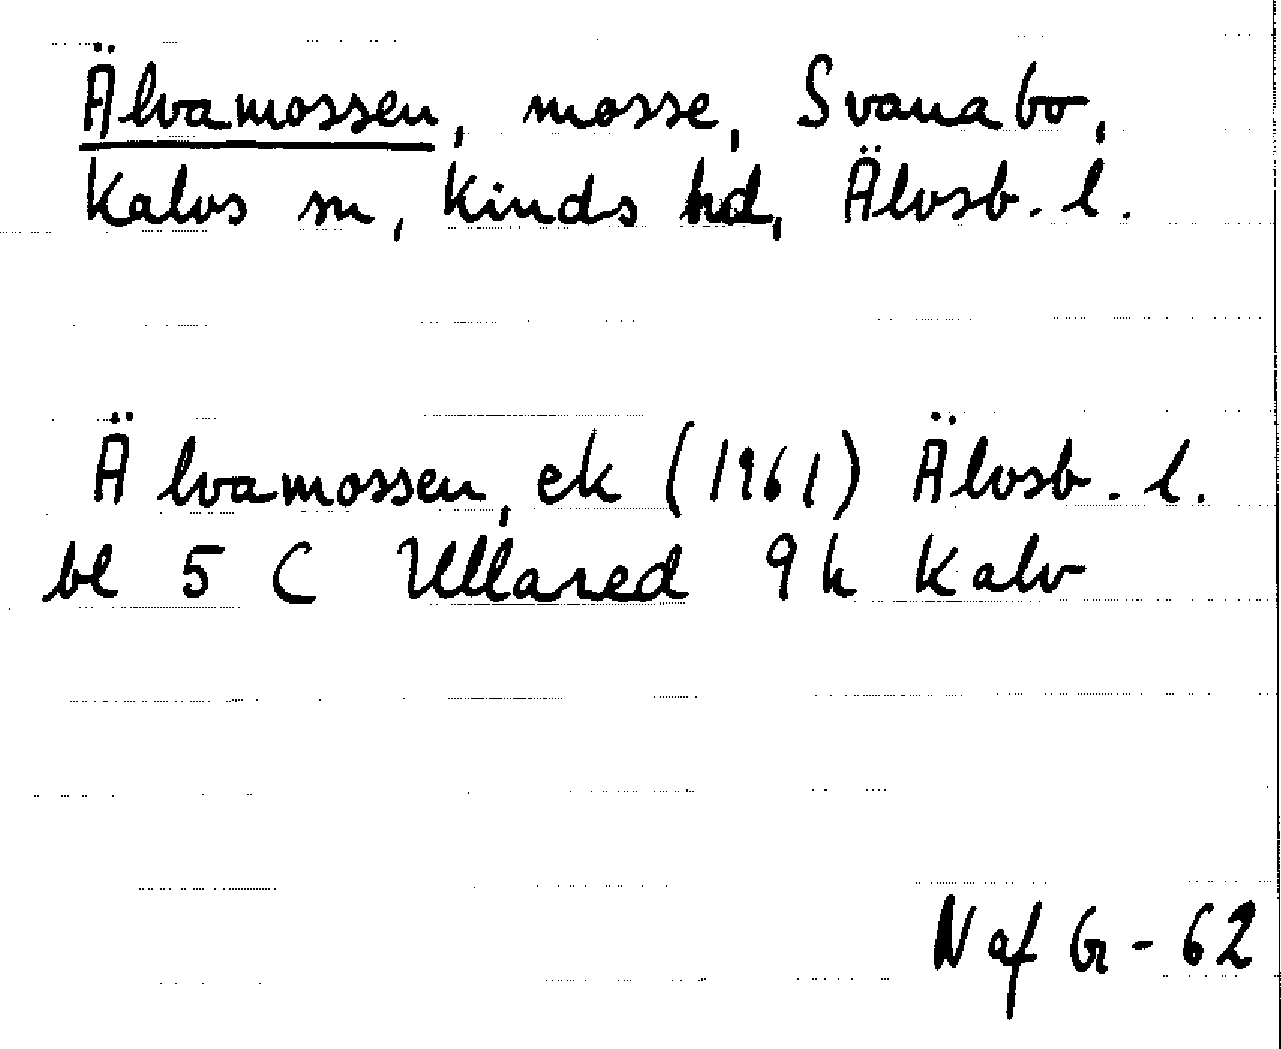 Älvamossen, mosse, Svanabo,
Kalvs sn, Kinds hd, Älvsb. l.
Älvamossen, ek (1961) Älvsb. l.
bl 5 C Ullared 9 h Kalv
N af G - 62